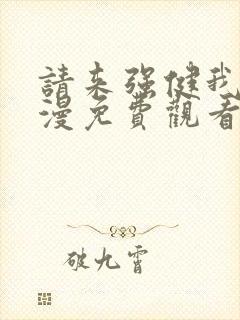 請来强健我
漫免費觀看
破九霄